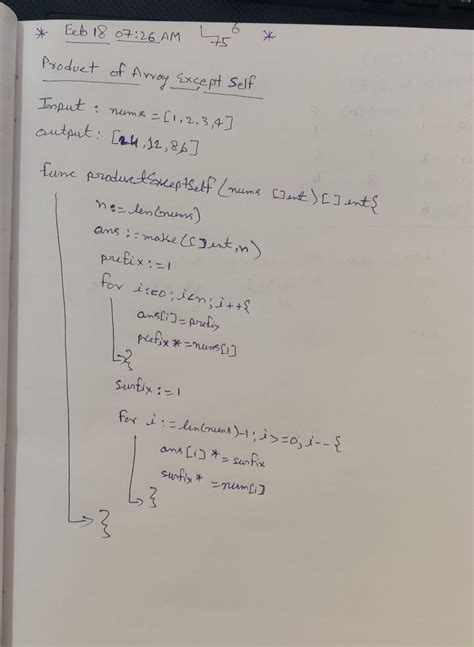 * Feb 18 07:26 AM 6 75 *
Product of Array Except Self
Input : nums = [1,2,3,4]
output : [24,12,8,6]
func productExceptSelf (nums []int) []int{
n := len(nums)
ans := make([]int,n)
prefix := 1
for i:=0; i<n; i++{
ans[i] = prefix
prefix *= nums[i]
}
surfix := 1
for i := len(nums)-1; i>=0; i--{
ans[i] *= surfix
surfix *= num[i]
}
}